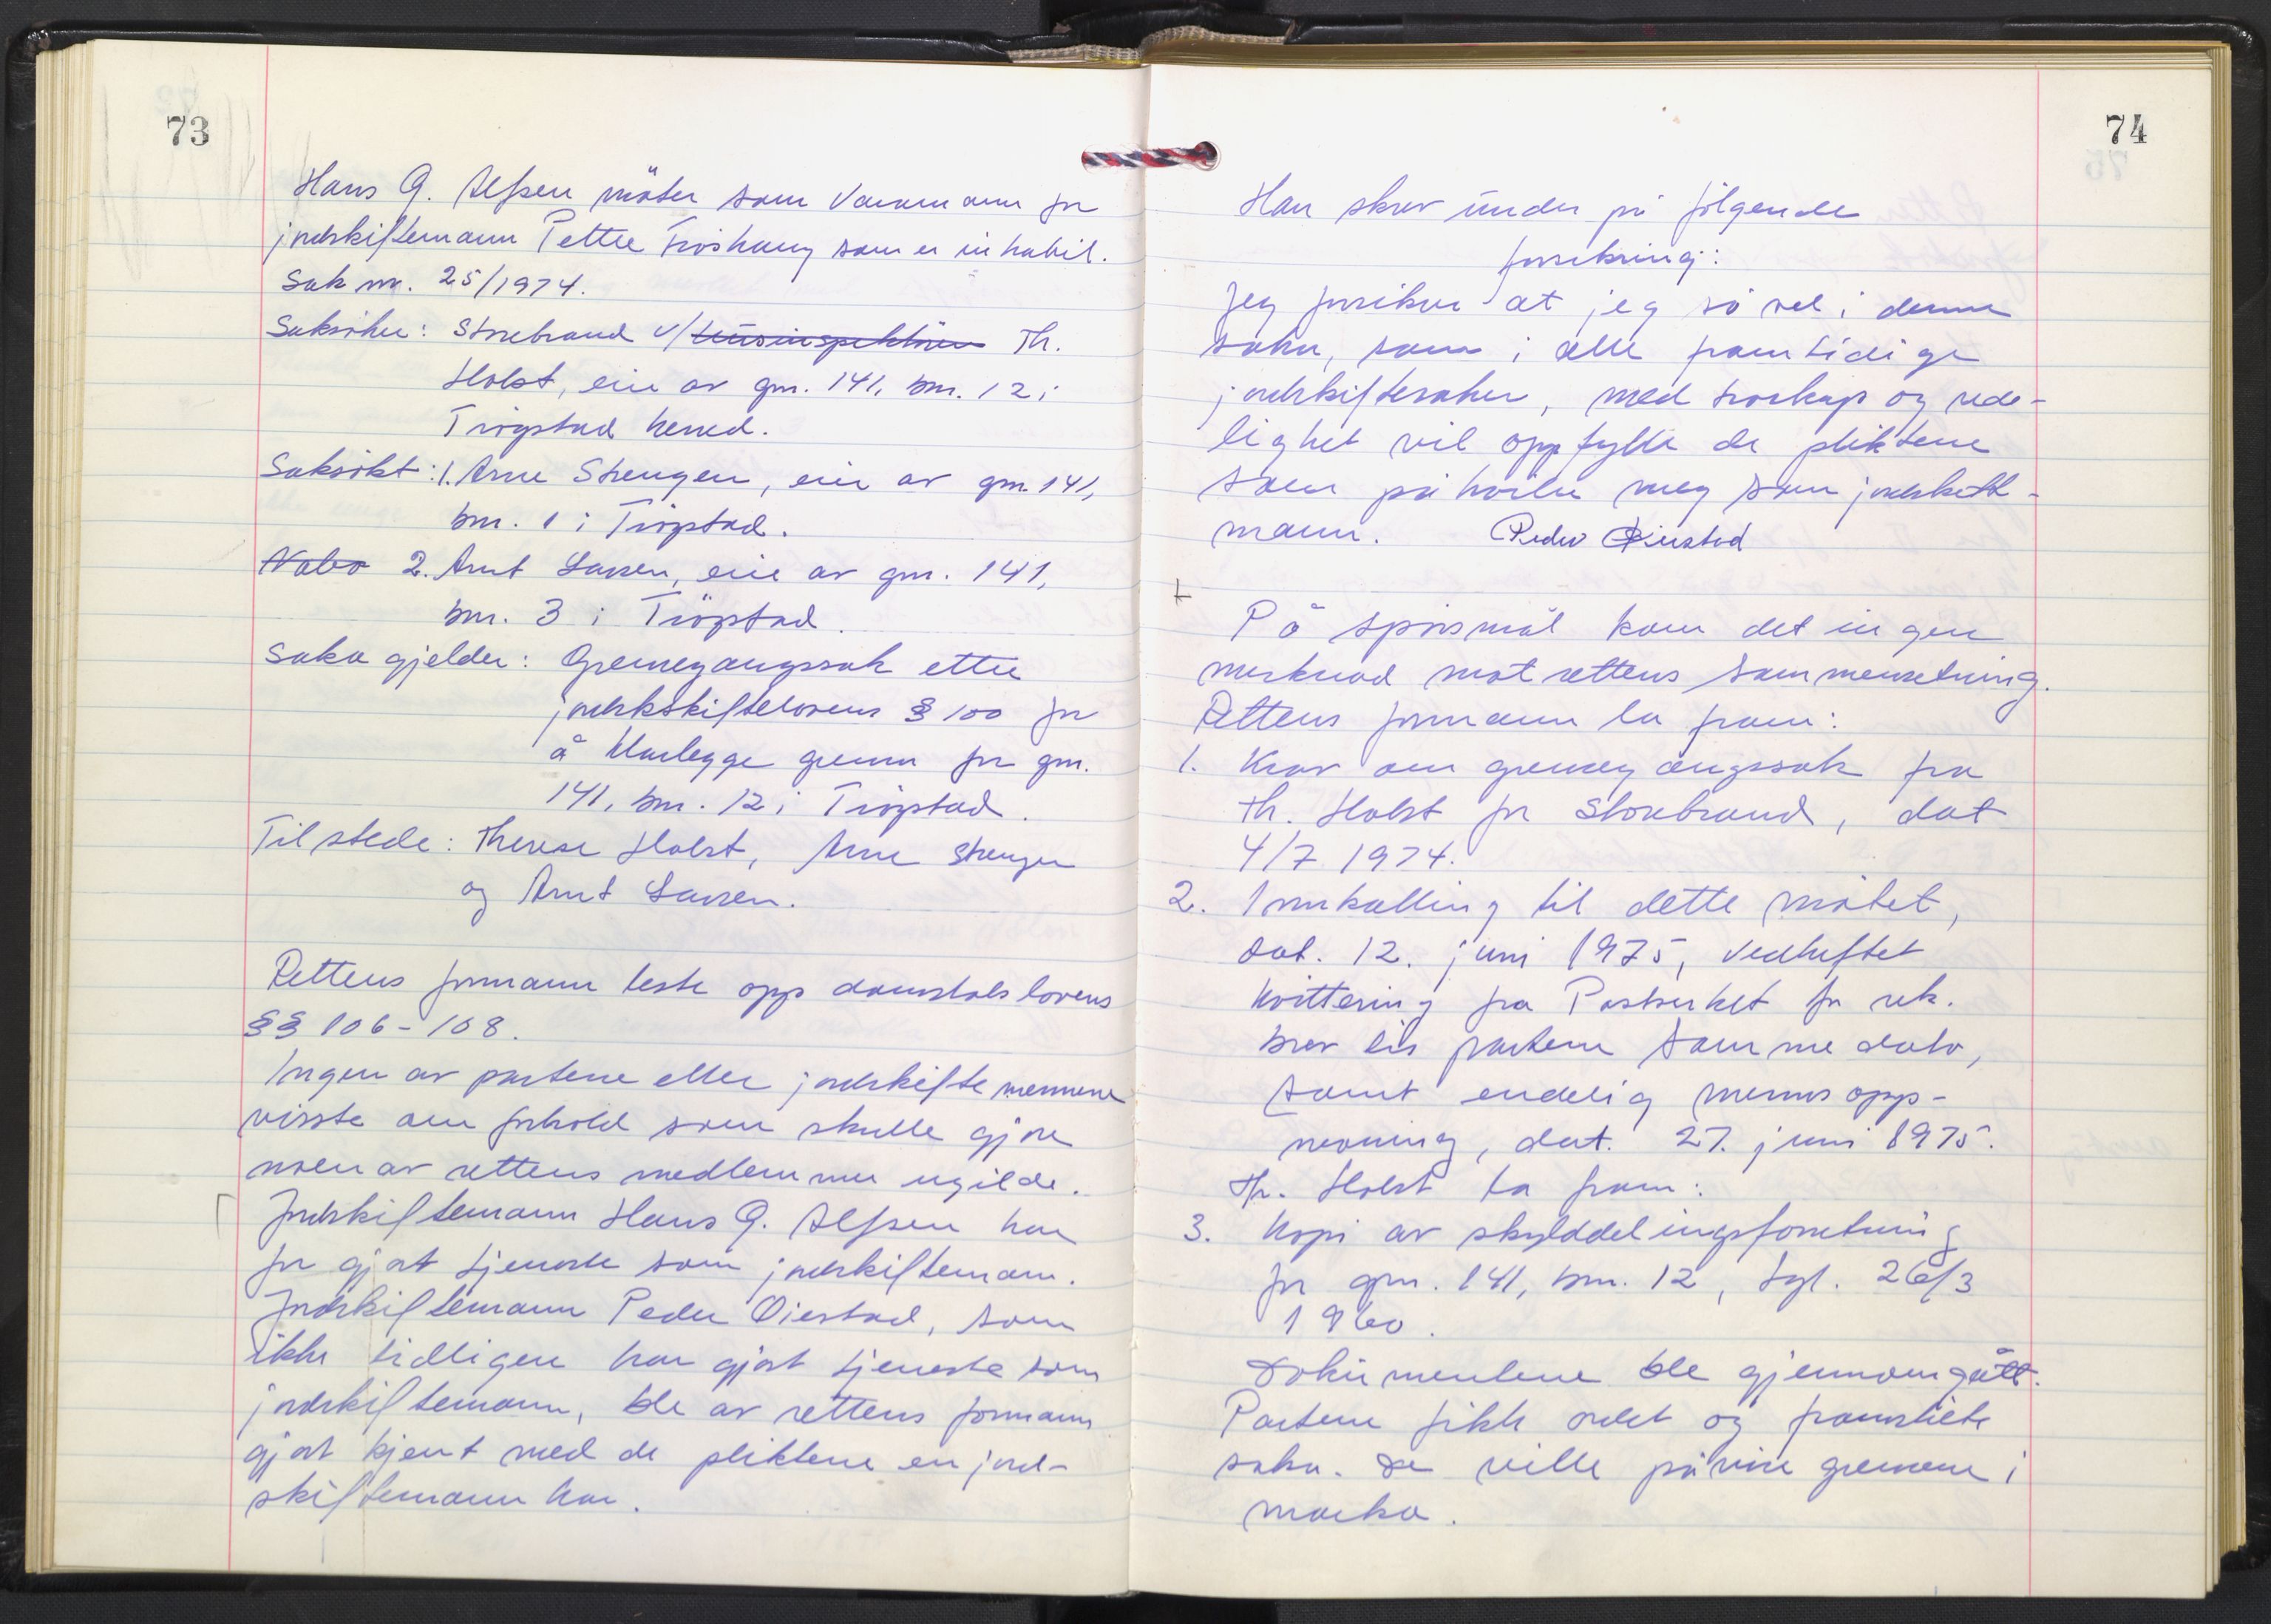 73
Hans G. Alfsen möter som varamann for
jordskiftemann Petter Fröshaug som er inhabil.
Sak nr. 25/1974.
Saksöker: Storebrand v/ husinspektören Th.
Holst, eier av gnr. 141, bnr. 12 i
Trögstad herred.
Saksökt: 1. Arne Strengen, eier av gnr. 141,
bnr. 1 i Trögstad.
Nabo 2. Arnt Larsen, eier av gnr. 141,
bnr. 3 i Trögstad.
Saka gjelder: Grensegangssak etter
jordskskiftelovens § 100 for
å klarlegge grensen for gnr.
141, bnr. 12 i Trögstad.
Til stede: Therese Holst, Arne Strengen
og Arnt Larsen.
Rettens formann leste opp domstolslovens
§§ 106-108.
Ingen av partene eller jordskiftemennene
visste om forhold som skulle gjöre
noen av rettens medlemmer ugilde.
Jordskiftemann Hans G. Alfsen har
för gjort tjeneste som jordskiftemann.
Jordskiftemann Peder Öiestad, som
ikke tidligere har gjort tjeneste som
jordskiftemann, ble av rettens formann
gjort kjent med de pliktene en jord-
skiftemann har.
74
Han skrev under på fölgende
forsikring:
Jeg forsikrer at jeg så vel i denne
saken, som i alle framtidige
jordskiftesaker, med troskap og rede-
lighet vil oppfylle de pliktene
som påhviler meg som jordskift-
mann. Peder Øiestad
På spörsmål kom det ingen
merknad mot rettens sammensetning.
Rettens formann la fram:
1. Krav om grensegangssak fra
Th. Holst for Storebrand, dat
4/7 1974.
2. Innkalling til dette mötet,
dat. 12. juni 1975, vedheftet
kvittering fra Postverket for rek.
brev til partene samme dato,
samt endelig menns opp-
nevning, dat. 27. juni 1975.
Th. Holst la fram:
3. Kopi av skylddelingsforretning
for gnr. 141, bnr. 12, tgl. 26/3
1960.
Dokumentene ble gjennomgått.
Partene fikk ordet og framstilte
saka. De ville påvise grensene i
marka.